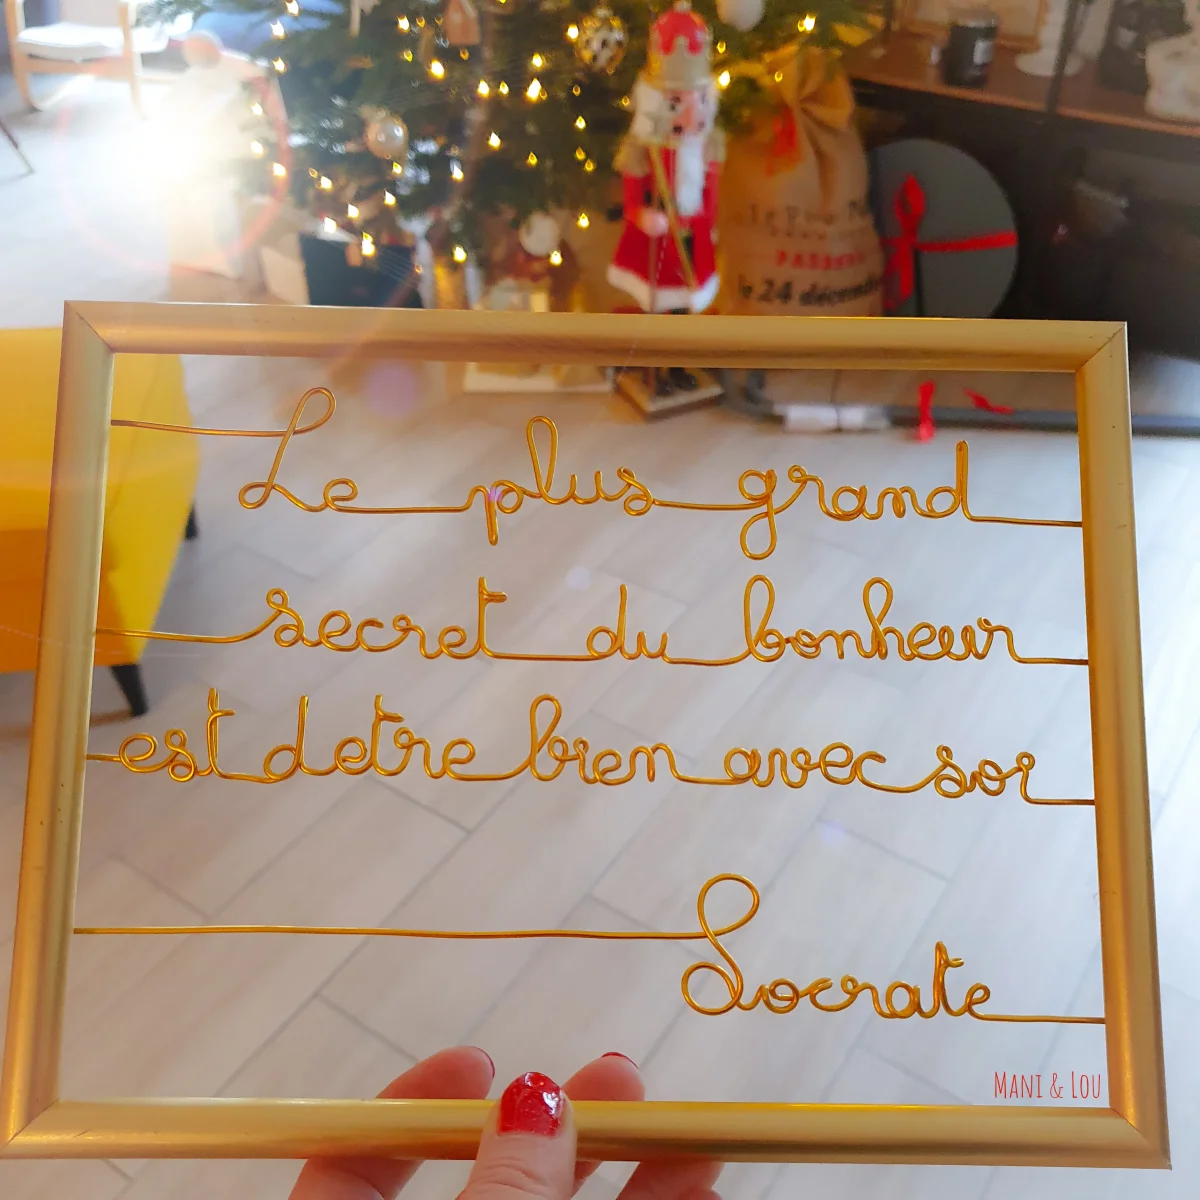 PASSERA
le 24 décembre
Le plus grand
secret du bonheur
est detre bien avec soi
Socrate
MANI & LOU